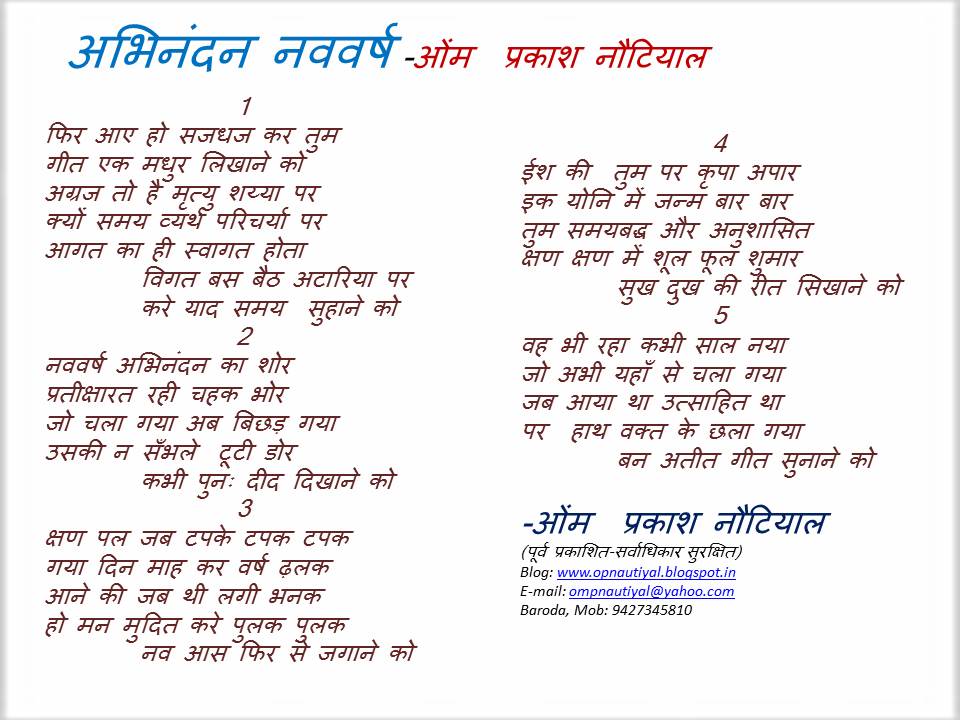 अभिनंदन नववर्ष -ओंम प्रकाश नौटियाल
1
फिर आए हो सजधज कर तुम
गीत एक मधुर लिखाने को
अग्रज तो है मृत्यु शय्या पर
क्यों समय व्यर्थ परिचर्या पर
आगत का ही स्वागत होता
विगत बस बैठ अटारिया पर
करे याद समय सुहाने को
2
नववर्ष अभिनंदन का शोर
प्रतीक्षारत रही चहक भोर
जो चला गया अब बिछड़ गया
उसकी न सँभले टूटी डोर
कभी पुनः दीद दिखाने को
3
क्षण पल जब टपके टपक टपक
गया दिन माह कर वर्ष ढ़लक
आने की जब थी लगी भनक
हो मन मुदित करे पुलक पुलक
नव आस फिर से जगाने को
4
ईश की तुम पर कृपा अपार
इक योनि में जन्म बार बार
तुम समयबद्ध और अनुशासित
क्षण क्षण में शूल फूल शुमार
सुख दुख की रीत सिखाने को
5
वह भी रहा कभी साल नया
जो अभी यहाँ से चला गया
जब आया था उत्साहित था
पर हाथ वक्त के छला गया
बन अतीत गीत सुनाने को
-ओंम प्रकाश नौटियाल
(पूर्व प्रकाशित-सर्वाधिकार सुरक्षित)
Blog: www.opnautiyal.blogspot.in
E-mail: ompnautiyal@yahoo.com
Baroda, Mob: 9427345810